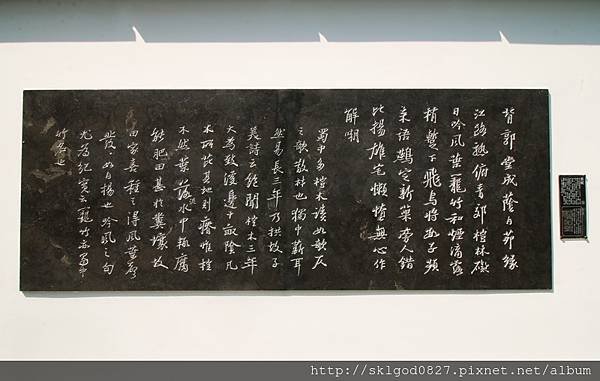 背郭堂成蔭白茅緣
江路熟俯青郊榿林礙
日吟風葉籠竹和煙滴露
梢蹔下飛烏將數子頻
來語鷰定新巢旁人錯
比揚雄宅懶惰無心作
解嘲
蜀中多榿木讀如欹仄
之欹散材也獨中薪耳
然易長三年乃拱故子
美詩云飽聞榿木三年
大為致溪邊十畝陰凡
木所芘其地則瘠惟榿
不然葉落水中輒腐
能肥田甚於糞壤故
田家喜種之得風葉聲
發發如白楊也吟風之句
尤為紀實云籠竹亦蜀中
竹名也
http://sklgod0827.pixnet.net/album